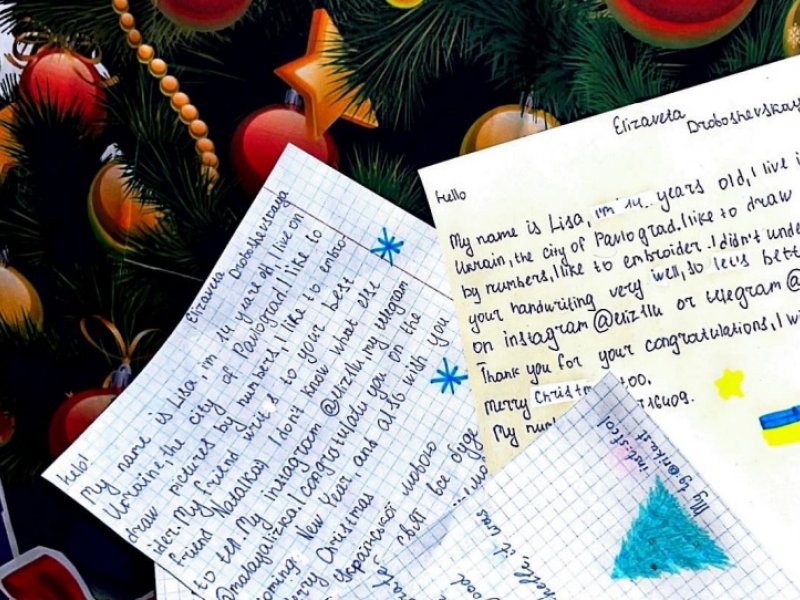 Elizaveta Droboshevskaya
hello!
My name is Lisa, i'm 14 years old, I live on
Ukraine, the city of Pavlograd. I like to
draw pictures by numbers, I like to embro-
ider. My friend writes to your best
friend Natalkay. I don't know what else
to tell. My instagram @elizllu, my telegram
@malayalizka. I congratulate you on the
coming New Year, and also wish you
Merry Christmas
Української мовою
свят все буде
Elizaveta Droboshevskaya
hello
My name is Lisa, i'm 14 years old, I live
Ukrain, the city of Pavlograd. I like to draw
by numbers, I like to embroider. I didn't
your handwriting very well, so let's
on instagram @elizllu or telegram @
Thank you for your congratulations, I
Merry Christ too.
My 16409.
hello, it was